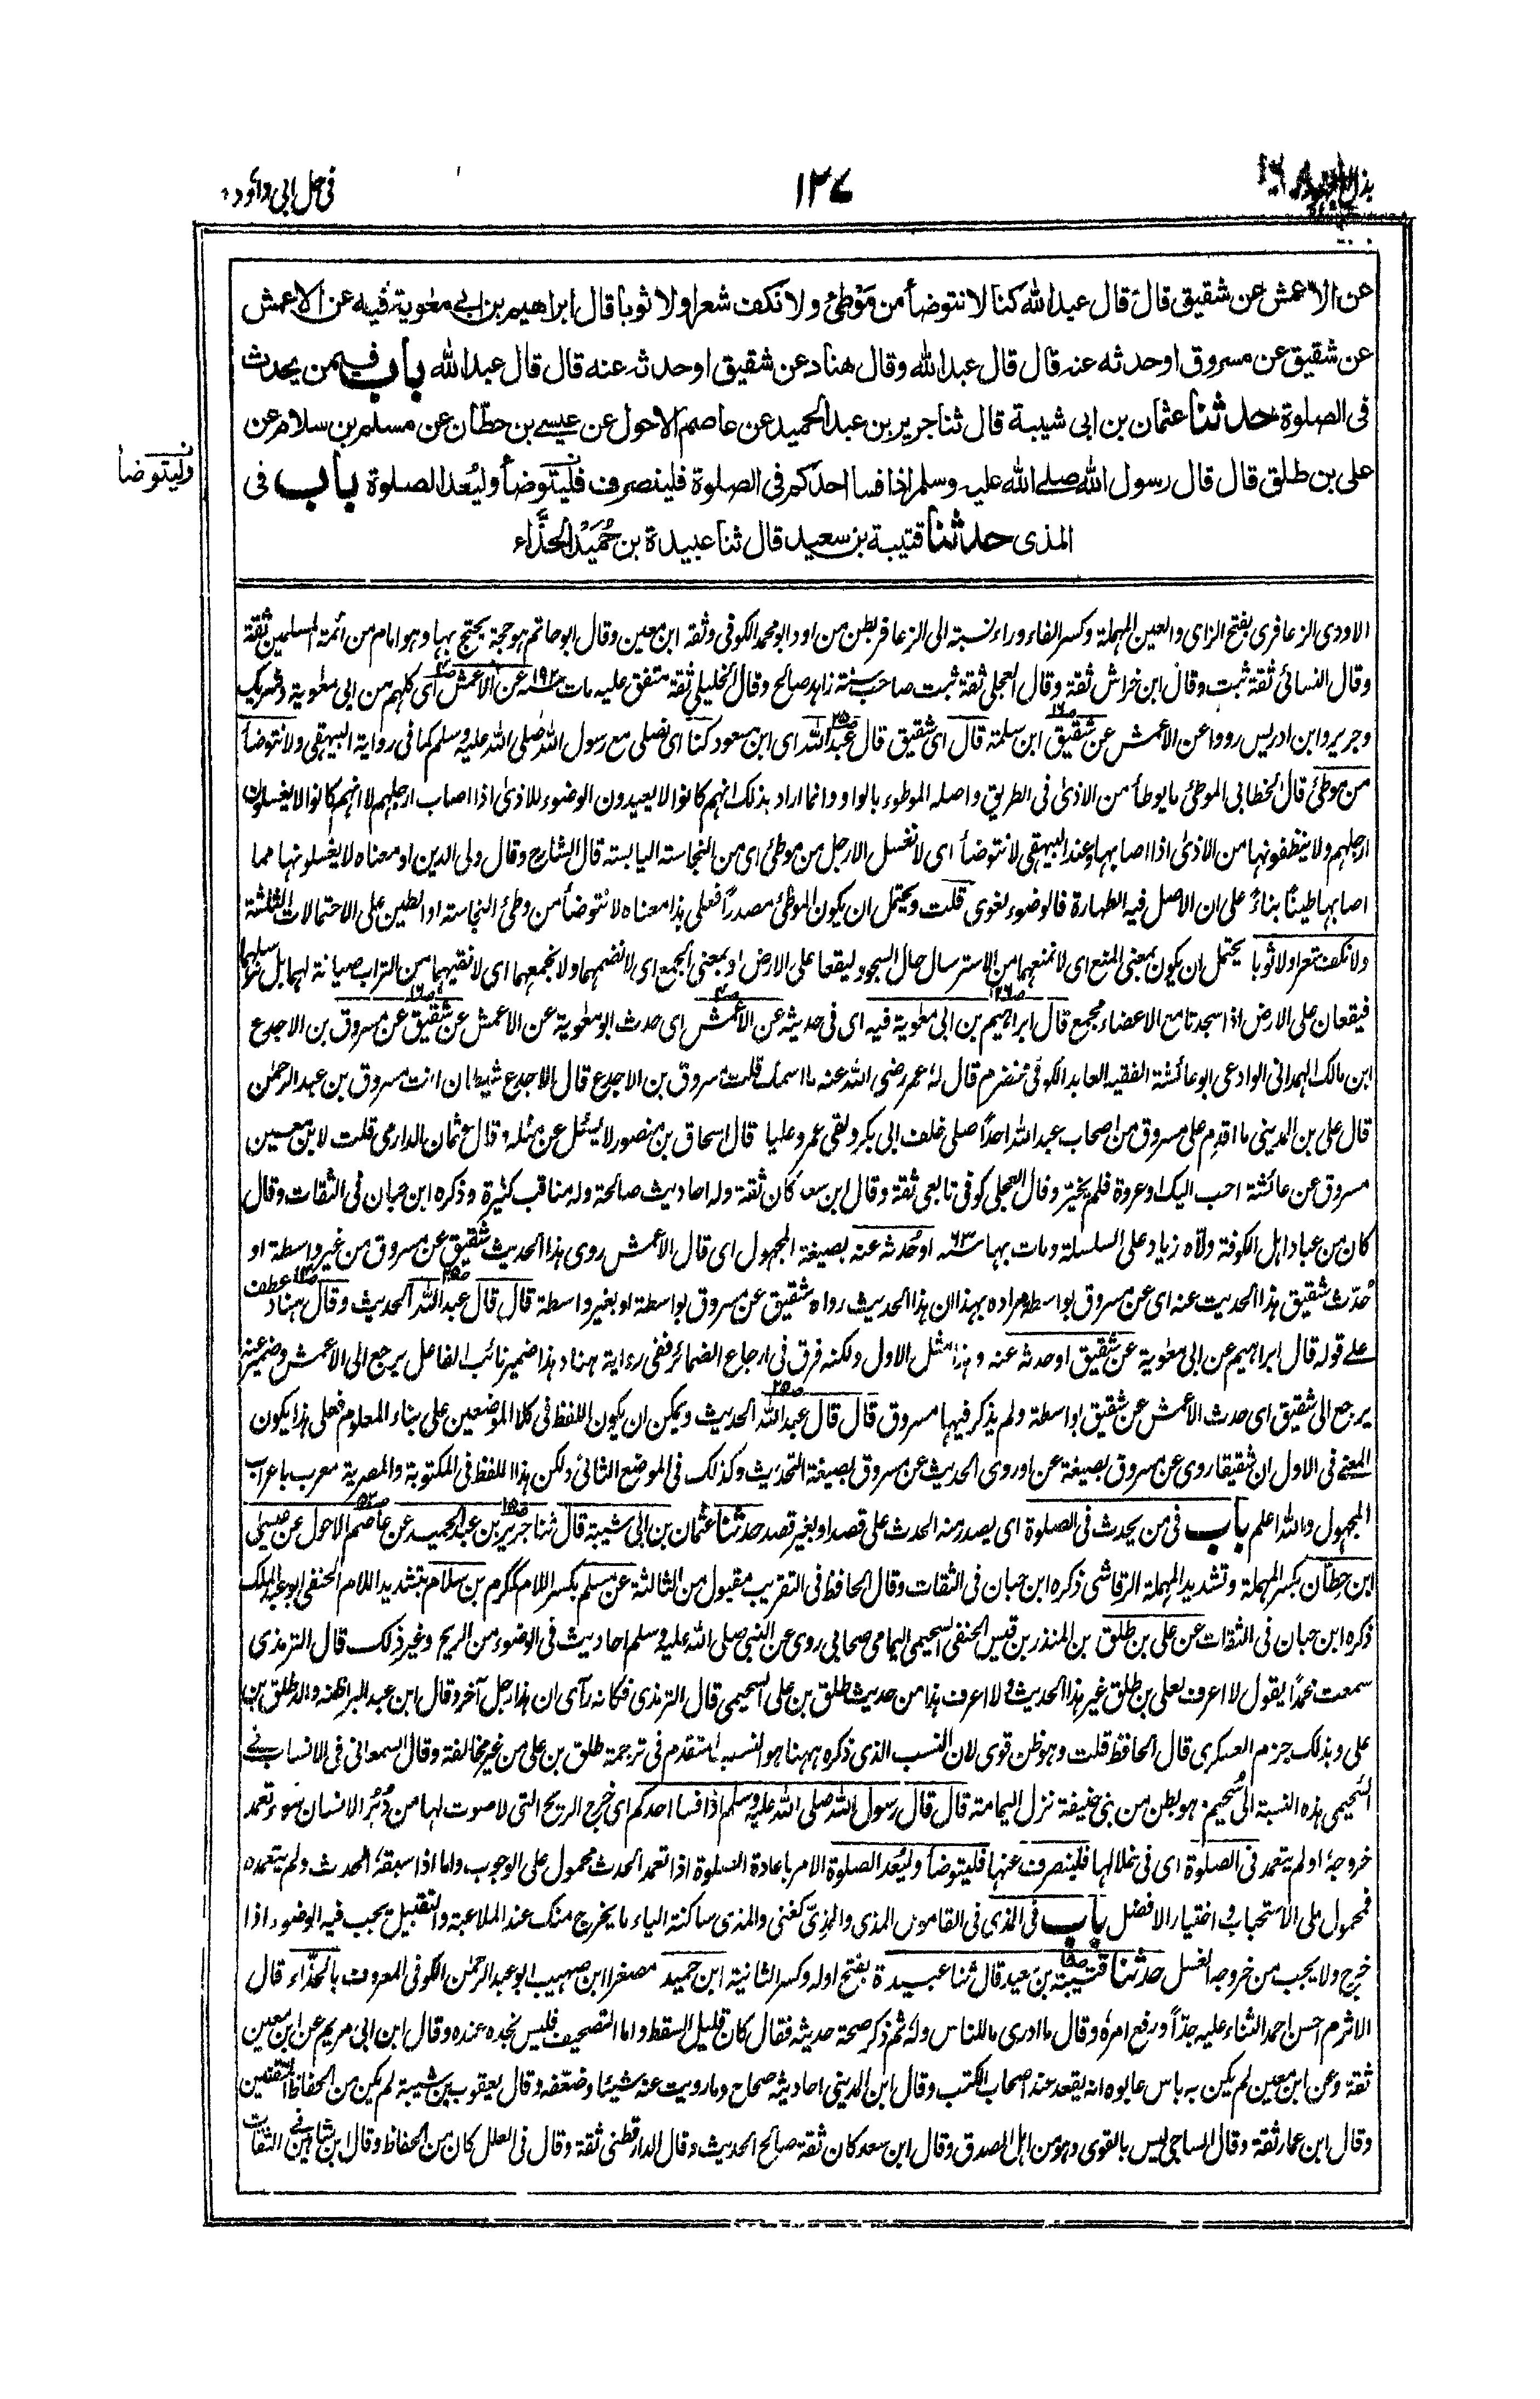 بذل المجهود ١٢٧ فى حل ابى داؤد
عن الاعمش عن شقيق قال قال عبد الله كنا لا نتوضأ من مَوْطِئ ولا نكف شعرا ولا ثوبا قال ابراهيم بن ابي معٰوية فيه عن الاعمش
عن شقيق عن مسروق او حدثه عنه قال قال عبد الله وقال هناد عن شقيق او حدثه عنه قال قال عبد الله باب فيمن يحدث
فى الصلوة حدثنا عثمان بن ابى شيبة قال ثنا جرير بن عبد الحميد عن عاصم الاحول عن عيسى بن حطّان عن مسلم بن سلام عن
على بن طلق قال قال رسول الله صلى الله عليه وسلم اذا فسا احدكم فى الصلوة فلينصرف فليتوضأ وليُعد الصلوة باب فى
وليتوضأ
المذى حدثنا قتيبة بن سعيد قال ثنا عبيدة بن حُمَيْد الحذَّاء
الاودى الزعافرى بفتح الزاى والعين المهملة وكسر الفاء وراء نسبة الى الزعافر بطن من اود ابو محمد الكوفى وثقه ابن معين وقال ابو حاتم هو حجة يحتج بها وهو امام من ائمة المسلمين ثقة
وقال النسائى ثقة ثبت وقال ابن خراش ثقة وقال العجلى ثقة ثبت صاحب سنة زاهد صالح وقال الخليلى ثقة متفق عليه مات سنة ١٩٢ عن الاعمش اى كلهم من ابى معٰوية وشريك
وجرير وابن ادريس رووا عن الاعمش عن شقيق ابن سلمة قال اى شقيق قال عبد الله اى ابن مسعود كنا اى نصلى مع رسول الله صلى الله عليه وسلم كما فى رواية البيهقى ولا نتوضأ
من موطئ قال الخطابى الموطئ ما يوطأ من الاذىٰ فى الطريق واصله الموطوء بالواو وانما اراد بذلك انهم كانوا لا يعيدون الوضوء للاذىٰ اذا اصاب ارجلهم لا انهم كانوا لا يغسلون
ارجلهم ولا ينظفونها من الاذىٰ اذا اصابها وعند البيهقى لا نتوضأ اى لا نغسل الارجل من موطئ اى من النجاسة اليابسة قال الشارح وقال ولى الدين او معناه لا يغسلونها مما
اصابها طينًا بناءً على ان الاصل فيه الطهارة فالوضوء لغوى قلت ويحتمل ان يكون الموطئ مصدراً فعلى هذا معناه لا نتوضأ من وطئ النجاسة او الطين على الاحتمالات الثلثة
ولا نكف شعرا ولا ثوبا يحتمل ان يكون بمعنى المنع اى لا نمنعهما من الاسترسال حال السجود ليقعا على الارض او بمعنى الجمع اى لا نضمهما ولا نجمعهما اى لا نقيهما من التراب صيانة لهما بل نرسلهما
فيقعان على الارض اذا سجدنا مع الاعضاء مجمع قال ابراهيم بن ابى معٰوية فيه اى فى حديثه عن الاعمش اى حدث ابو معٰوية عن الاعمش عن شقيق عن مسروق بن الاجدع
ابن مالك الهمدانى الوادعى ابو عائشة الفقيه العابد الكوفى مخضرم قال له عمر رضى الله عنه ما اسمك قلت مسروق بن الاجدع قال الاجدع شيطان انت مسروق بن عبد الرحمٰن
قال على بن المدينى ما اقدم على مسروق من اصحاب عبد الله احداً صلى خلف ابى بكر ولقى عمر وعليا قال اسحاق بن منصور لا يسئل عن مثله وقال عثمان الدارمى قلت لابن معين
مسروق عن عائشة احب اليك او عروة فلم يخير وقال العجلى كوفى تابعى ثقة وقال ابن سعد كان ثقة وله احاديث صالحة وله مناقب كثيرة وذكره ابن حبان فى الثقات وقال
كان من عباد اهل الكوفة ولاّه زياد على السلسلة ومات بها سنة ٦٣ او حُدثه عنه بصيغة المجهول اى قال الاعمش روى هذا الحديث شقيق عن مسروق من غير واسطة او
حُدّث شقيق هذا الحديث عنه اى عن مسروق بواسطة ومراده بهذا ان هذا الحديث رواه شقيق عن مسروق بواسطة او بغير واسطة قال قال عبد الله الحديث وقال هناد عطف
على قوله قال ابراهيم عن ابى معٰوية عن شقيق او حدثه عنه وهذا مثل الاول ولكنه فرق فى ارجاع الضمائر ففى رواية هناد هذا ضمير نائب الفاعل يرجع الى الاعمش وضمير عنه
يرجع الى شقيق اى حدث الاعمش عن شقيق بواسطة ولم يذكر فيها مسروق قال قال عبد الله الحديث ويمكن ان يكون اللفظ فى كلا الموضعين على بناء المعلوم فعلى هذا يكون
المعنى فى الاول ان شقيقا روى عن مسروق بصيغة عن او روى الحديث عن مسروق بصيغة التحديث وكذلك فى الموضع الثانى ولكن هذا اللفظ فى المكتوبة والمصرية معرب باعراب
المجهول والله اعلم باب فى من يحدث فى الصلوة اى يصدر منه الحدث على قصد او بغير قصد حدثنا عثمان بن ابى شيبة قال ثنا جرير بن عبد الحميد عن عاصم الاحول عن عيسىٰ
ابن حِطّان بكسر المهملة وتشديد المهملة الرقاشى ذكره ابن حبان فى الثقات وقال الحافظ فى التقريب مقبول من الثالثة عن مسلم بكسر اللام كمكرم بن سلام بتشديد اللام الحنفى ابو عبد الملك
ذكره ابن حبان فى الثقات عن على بن طلق بن المنذر بن قيس الحنفى السحيمى اليمامى صحابى روى عن النبى صلى الله عليه وسلم احاديث فى الوضوء من الريح وغير ذلك قال الترمذى
سمعت محمداً يقول لا اعرف لعلى بن طلق غير هذا الحديث ولا اعرف هذا من حديث طلق بن على السحيمى قال الترمذى فكانه رآى ان هذا رجل آخر وقال ابن عبد البر اظنه والد طلق بن
على وبذلك جزم العسكرى قال الحافظ قلت وهو ظن قوى لان النسب الذى ذكره ههنا هو النسب المتقدم فى ترجمة طلق بن على من غير مخالفة وقال السمعانى فى الانساب فى
السُحيمى هذه النسبة الى سُحيم هو بطن من بنى حنيفة نزل اليمامة قال قال رسول الله صلى الله عليه وسلم اذا فسا احدكم اى خرج الريح التى لا صوت لها من دُبُر الانسان سواء تعمد
خروجهُ او لم يتعمد فى الصلوة اى فى خلالها فلينصرف عنها فليتوضأ وليُعد الصلوة الامر باعادة الصلوة اذا تعمد الحدث محمول على الوجوب واما اذا سبقهُ الحدث ولم يتعمده
فمحمول على الاستحباب واختيار الافضل باب فى المذى فى القاموس المذى والمذِىّ كغنى والمذى ساكنة الياء ما يخرج منك عند الملاعبة والتقبيل يجب فيه الوضوء اذا
خرج ولا يجب من خروجه الغسل حدثنا قتيبة بن سعيد قال ثنا عبيدة بفتح اوله وكسر الثانية ابن حميد مصغرا ابن صهيب ابو عبد الرحمٰن الكوفى المعروف بالحذّاء قال
الاثرم احسن احمد الثناء عليه جدّاً ورفع امرهُ وقال ما ادرى ما للناس وله ثم ذكر صحة حديثه فقال كان قليل السقط واما التصحيف فليس نجده عنده وقال ابن ابى مريم عن ابن معين
ثقة وعن ابن معين لم يكن به باس عابوه انه يقعد عند اصحاب الكتب وقال ابن المدينى احاديثه صحاح وما رويت عنه شيئا وضعّفه وقال يعقوب بن شيبة لم يكن من الحفاظ المتقنين
وقال ابن عمار ثقة وقال الساجى ليس بالقوى وهو من اهل الصدق وقال ابن سعد كان ثقة صالح الحديث وقال الدارقطنى ثقة وقال فى العلل كان من الحفاظ وقال ابن شاهين فى الثقات